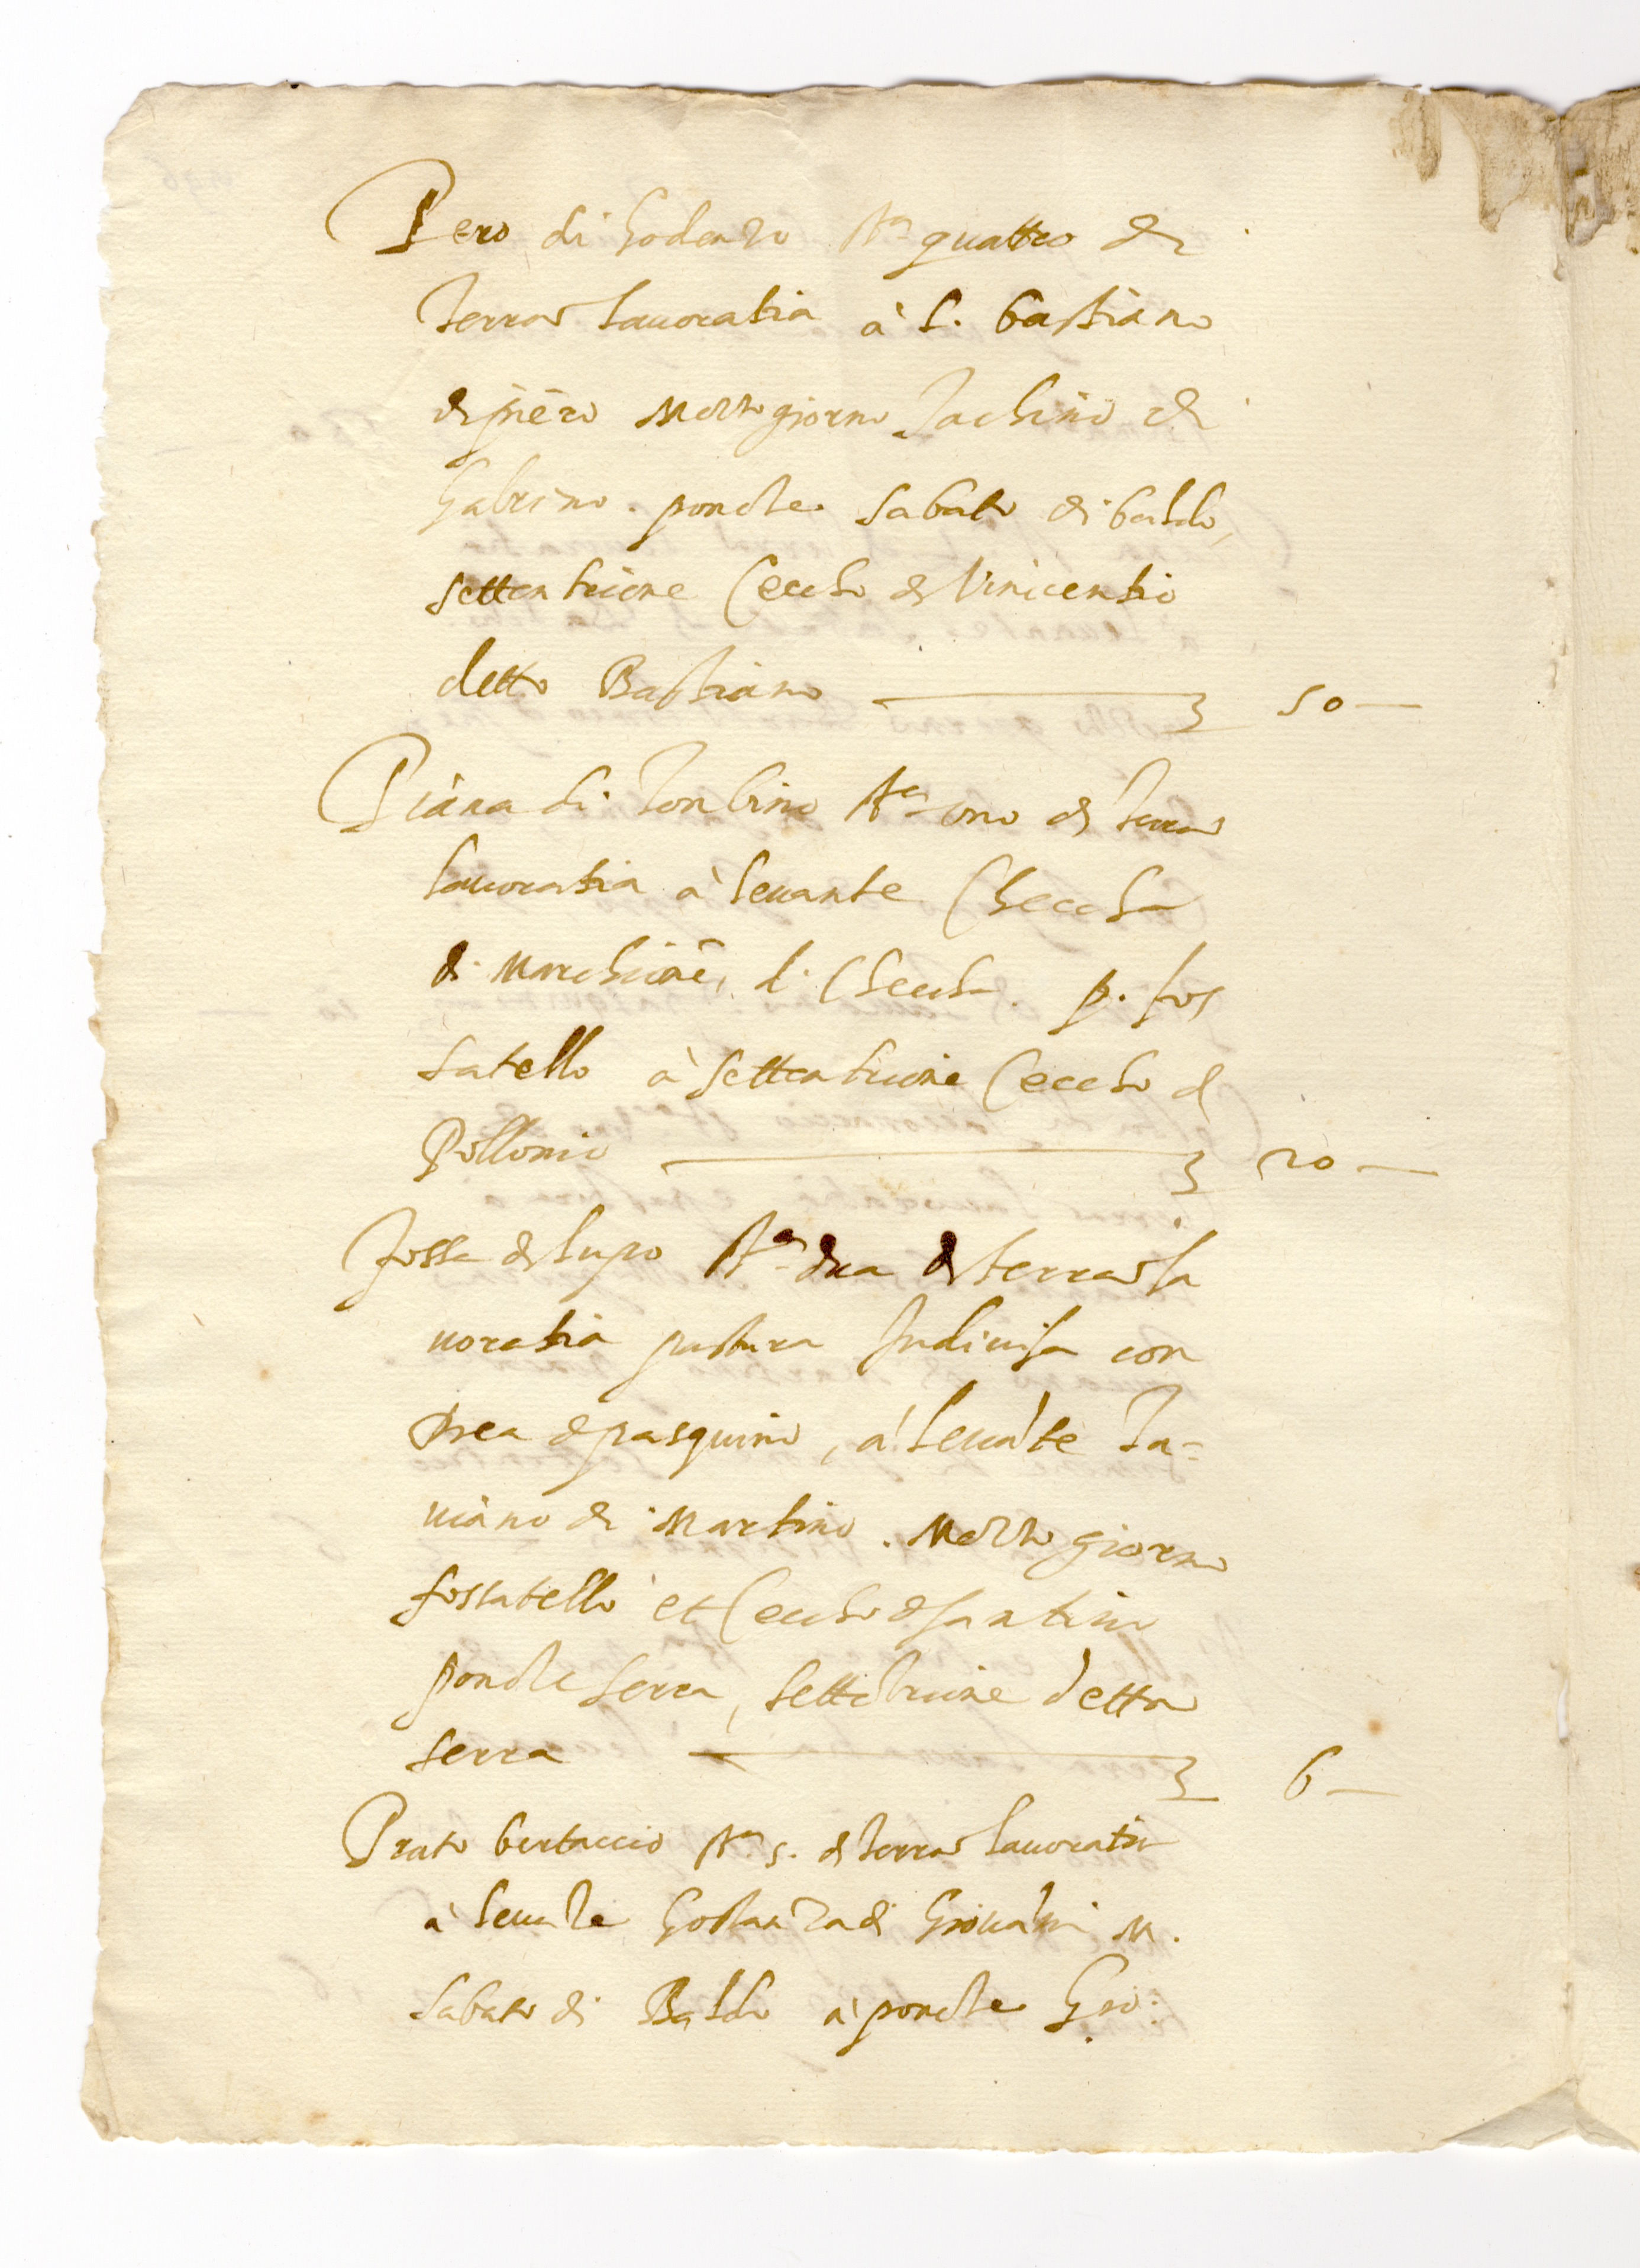 Pero di Godenzo St.a quattro di
terra lauoratia à l. bastiano
di piero Mezzogiorno Jachino di
Gabrino. ponẽte sabato di baldo,
settentrione Ceccho di Vinicentio
detto Bastiano 50 —
Piana di Tonbino St.a uno di terra
lauoratia à leuante Checcha
di Marchione, di Checcha. p. fos
satello à settentrione Ceccho di
Pollonio 20 —
Fossa di lupo St.a dua di terra la
uoratia pastura Indiuisa con
Drea di pasquino, à leuãte Ta=
uiano di Martino. Mezzogiorno
fossatello et Ceccho di santino
ponẽte serra, settẽtrione detta
serra 6 —
Prato bertaccio St.a 5. di terra lauoratia
à leuãte Gostanza di Giouãni M.
Sabato di Baldo à ponẽte Gio: